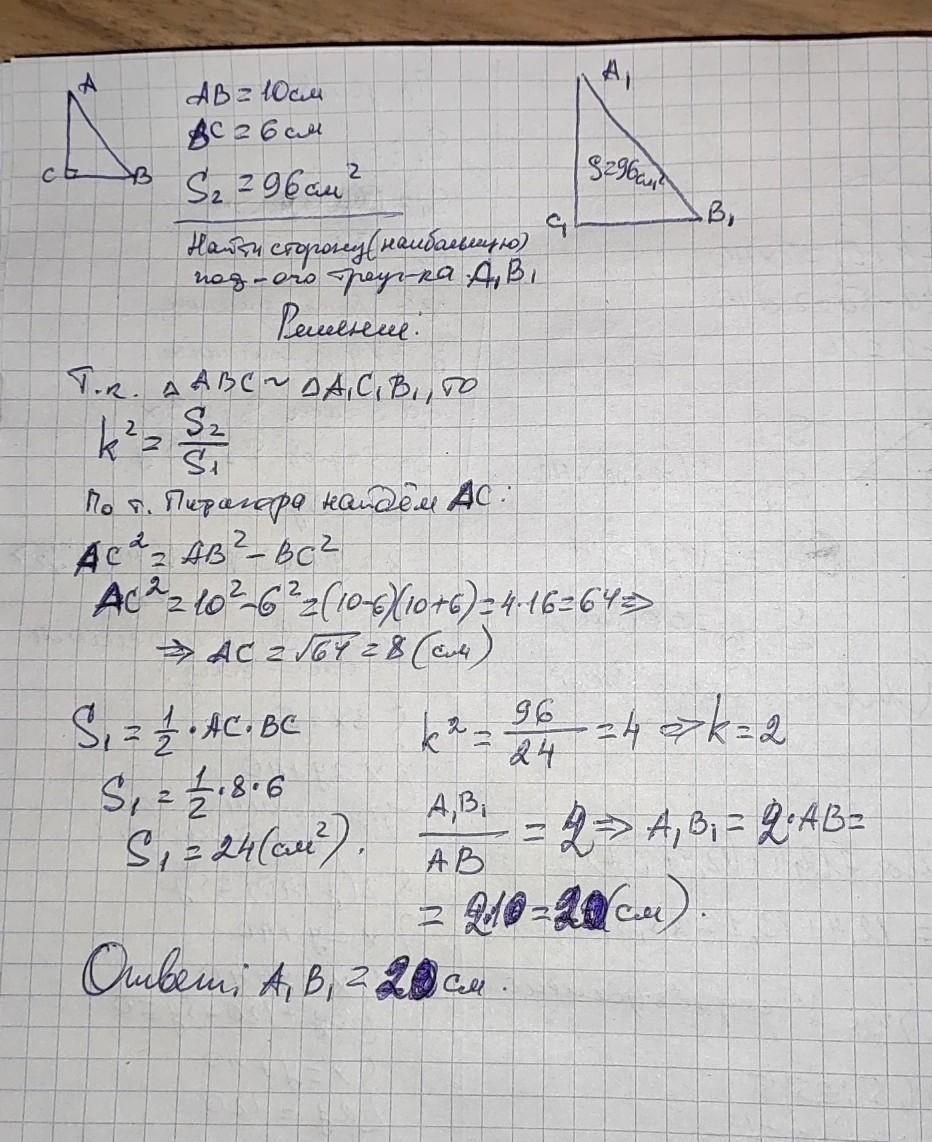 A
C
B
AB = 10см
BC = 6см
S₂ = 96см²
A₁
S=96см²
C₁
B₁
Найти сторону (наибольшую)
под-ого треуг-ка A₁B₁
Решение:
Т.к. △ABC ~ △A₁C₁B₁, то
k² = S₂/S₁
По т. Пифагора найдём AC:
AC² = AB² - BC²
AC² = 10² - 6² = (10-6)(10+6) = 4·16 = 64 ⇒
⇒ AC = √64 = 8 (см)
S₁ = 1/2 · AC · BC
S₁ = 1/2 · 8 · 6
S₁ = 24 (см²).
k² = 96/24 = 4 ⇒ k = 2
A₁B₁/AB = 2 ⇒ A₁B₁ = 2·AB =
= 2·10 = 20 (см).
Ответ: A₁B₁ = 20 см.